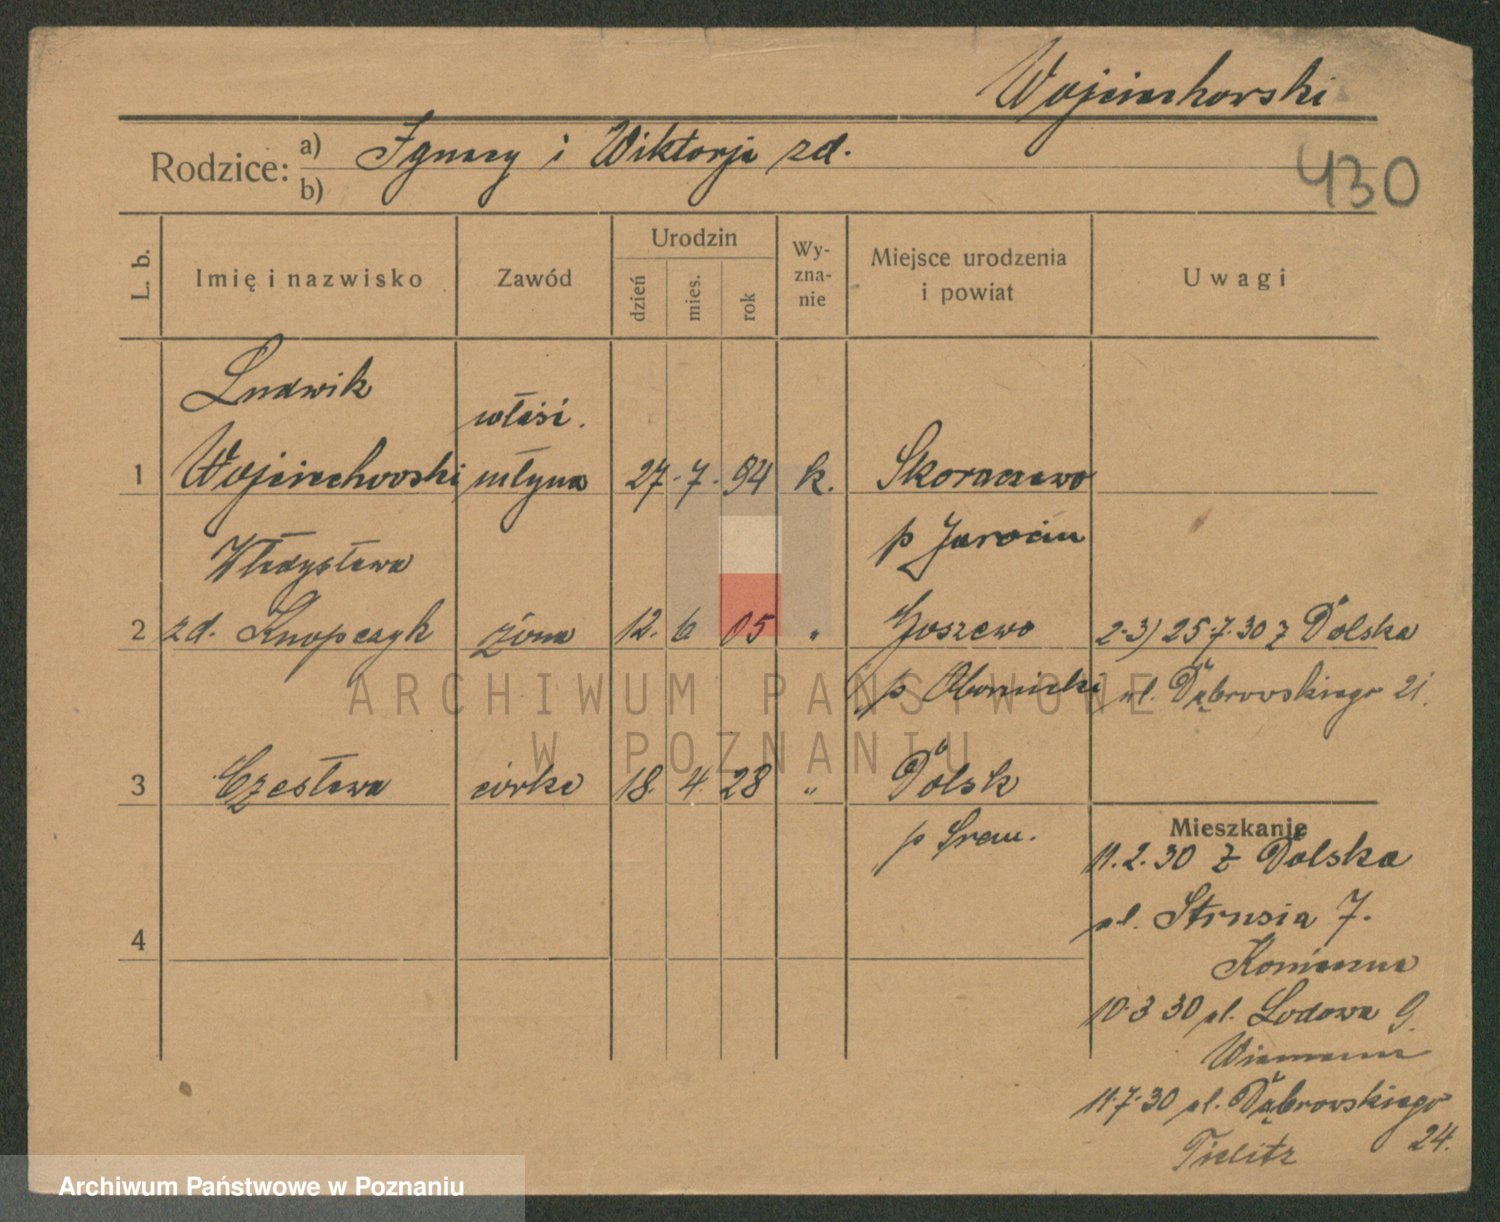 Wojciechowski
430
Rodzice: a) Ignacy i Wiktorja zd.
b)
L. b.
Imię i nazwisko
Zawód
Urodzin
dzień
mies.
rok
Wy-
zna-
nie
Miejsce urodzenia
i powiat
Uwagi
Ludwik
właśc.
1 Wojciechowski młyna 27. 7. 94 k. Skoraczewo
p Jarocin
Władysława
2 zd. Knopczyk żona 12. 6 05 " 2-3) 25.7.30 z Dolska
p Oborniki ul. Dąbrowskiego 21.
3 Czesława córka 18. 4. 28 " Dolsk
p Śrem.
Mieszkanie
11.2.30 z Dolska
ul. Strusia 7.
4
10.3 30 ul. Lodowa 9.
11.7.30 ul. Dąbrowskiego
24.
Tielitz
ARCHIWUM PAŃSTWOWE
W POZNANIU
Archiwum Państwowe w Poznaniu